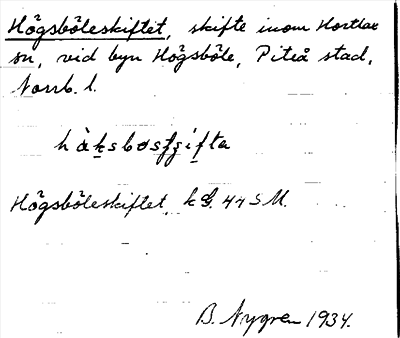 Högsböleskiftet, skifte inom Hortlax
sn, vid byn Högsböle, Piteå stad,
Norrb. l.
Högsböleskiftet, 44 S M.
B. Nygren 1934.